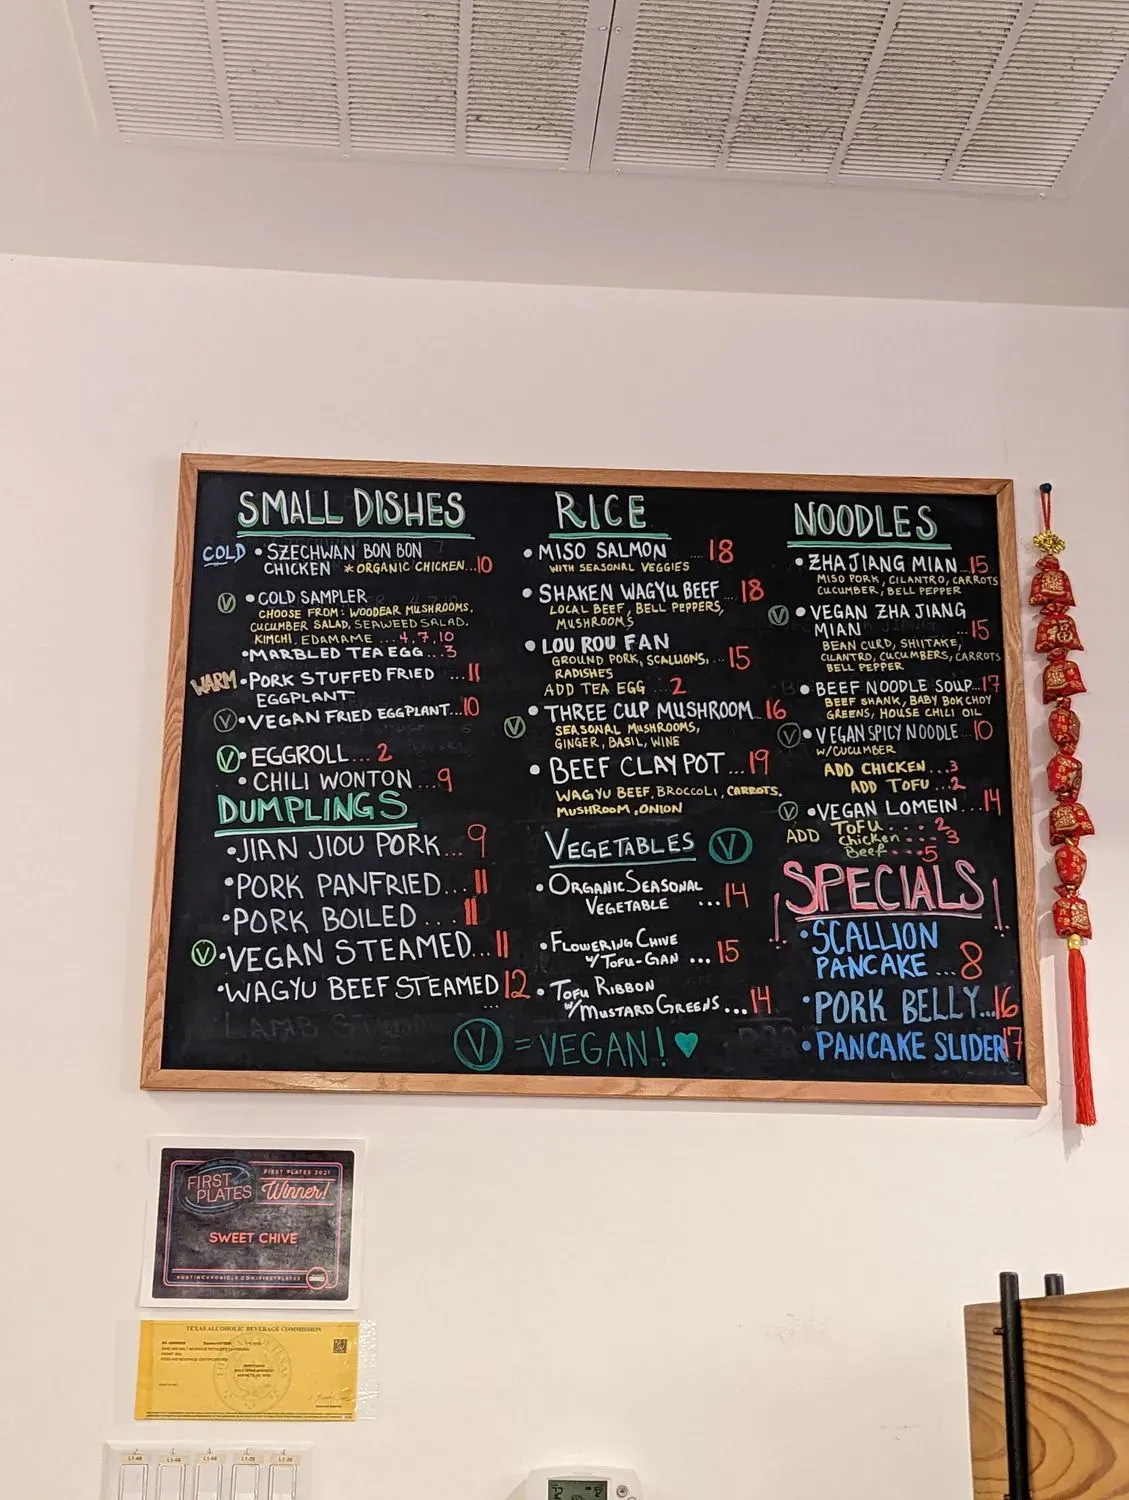 SMALL DISHES
COLD • SZECHWAN BON BON
CHICKEN *ORGANIC CHICKEN...10
V • COLD SAMPLER
CHOOSE FROM: WOODEAR MUSHROOMS,
CUCUMBER SALAD, SEAWEED SALAD,
KIMCHI, EDAMAME ... 4, 7, 10
• MARBLED TEA EGG ...3
WARM • PORK STUFFED FRIED ... 11
EGGPLANT
V • VEGAN FRIED EGGPLANT...10
V • EGGROLL ... 2
• CHILI WONTON ...9
DUMPLINGS
• JIAN JIOU PORK... 9
• PORK PANFRIED... 11
• PORK BOILED ... 11
V • VEGAN STEAMED... 11
• WAGYU BEEF STEAMED 12
...
LAMB
RICE
• MISO SALMON .... 18
WITH SEASONAL VEGGIES
• SHAKEN WAGYU BEEF ... 18
LOCAL BEEF, BELL PEPPERS,
MUSHROOMS
• LOU ROU FAN
GROUND PORK, SCALLIONS, ... 15
RADISHES
ADD TEA EGG ... 2
V • THREE CUP MUSHROOM... 16
SEASONAL MUSHROOMS,
GINGER, BASIL, WINE
• BEEF CLAY POT ... 19
WAGYU BEEF, BROCCOLI, CARROTS,
MUSHROOM, ONION
VEGETABLES V
• ORGANIC SEASONAL
VEGETABLE ... 14
• FLOWERING CHIVE
W/TOFU-GAN ... 15
• TOFU RIBBON
W/MUSTARD GREENS ... 14
V = VEGAN! ♥
NOODLES
• ZHA JIANG MIAN ... 15
MISO PORK, CILANTRO, CARROTS
CUCUMBER, BELL PEPPER
V • VEGAN ZHA JIANG
MIAN ... 15
BEAN CURD, SHIITAKE,
CILANTRO, CUCUMBERS, CARROTS
BELL PEPPER
• BEEF NOODLE SOUP...17
BEEF SHANK, BABY BOK CHOY
GREENS, HOUSE CHILI OIL
V • VEGAN SPICY NOODLE ...10
W/CUCUMBER
ADD CHICKEN ...3
ADD TOFU ...2
V • VEGAN LOMEIN ... 14
ADD TOFU . . . . 2
Chicken . . . . 3
Beef . . . . 5
! SPECIALS !
• SCALLION
PANCAKE ... 8
• PORK BELLY...16
• PANCAKE SLIDER 17
FIRST
PLATES
FIRST PLATES 2021
Winner!
SWEET CHIVE
AUSTINCHRONICLE.COM/FIRSTPLATES
TEXAS ALCOHOLIC BEVERAGE COMMISSION
L1-48 L1-48 L1-48 L1-20 L1-20
72